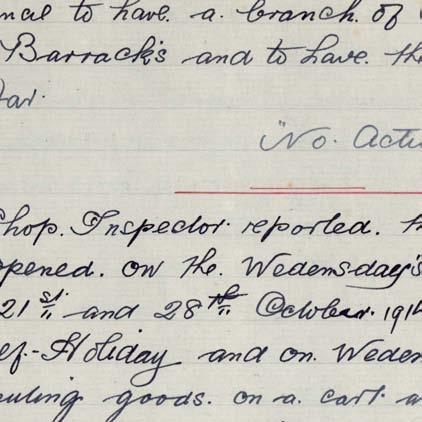 to have. a. branch. of
Barracks and to have. the
"No. Acti
Shop. Inspector. reported. th
opened. on the. Wedensday's
21st and 28th October. 191
Holiday and on. Weden
goods. on a. cart a